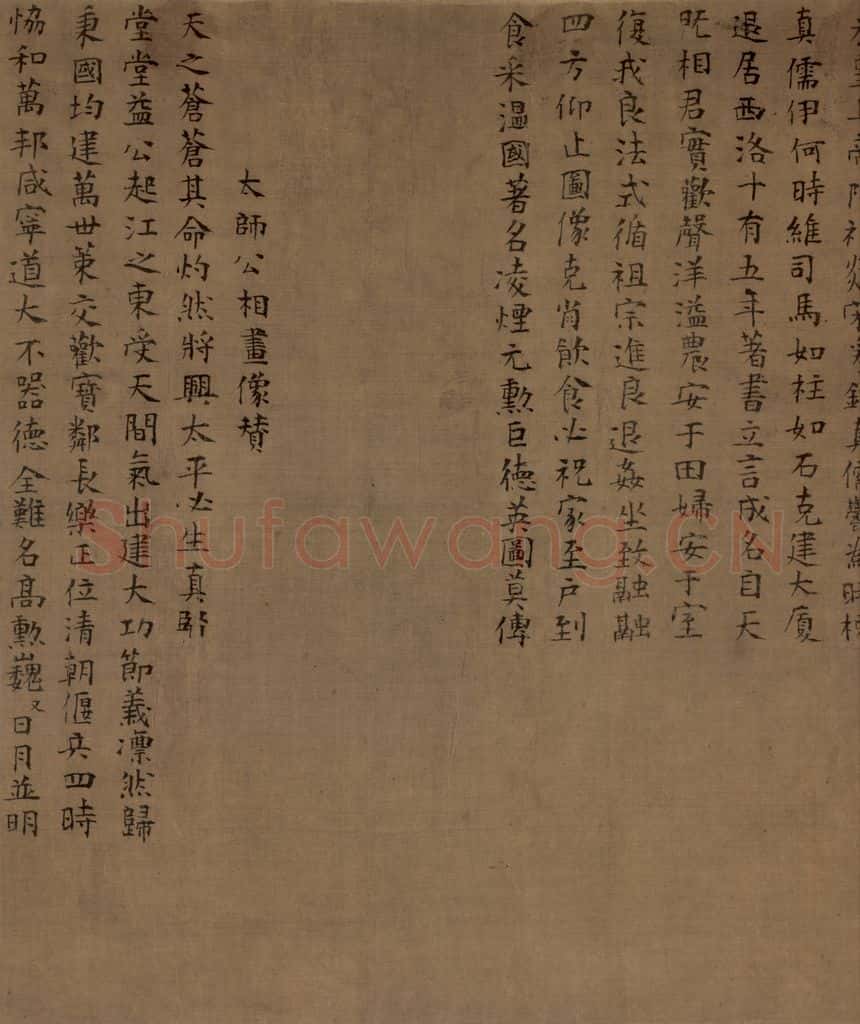 真儒伊何時維司馬如柱如石克建大厦
退居西洛十有五年著書立言成名自天
既相君實歡聲洋溢農安于田婦安于室
復我良法式循祖宗進良退姦坐致融融
四方仰止圖像克肖飲食必祝家至戶到
食采温國著名凌煙元勲巨德英圖莫傳
太師公相畫像賛
天之蒼蒼其命灼然將興太平必生真
堂堂益公起江之東受天間氣出建大功節義凛然歸
秉國均建萬世策交歡寳鄰長樂正位清朝偃兵四時
恊和萬邦咸寧道大不器德全難名高勲巍又日月並明
Shufawang.CN